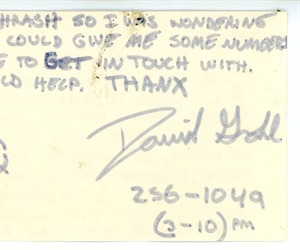 THRASH SO I WAS WONDERING
COULD GIVE ME SOME NUMBERS
TO GET IN TOUCH WITH.
LD HELP. THANX
David Grohl
256-1049
(3-10) PM